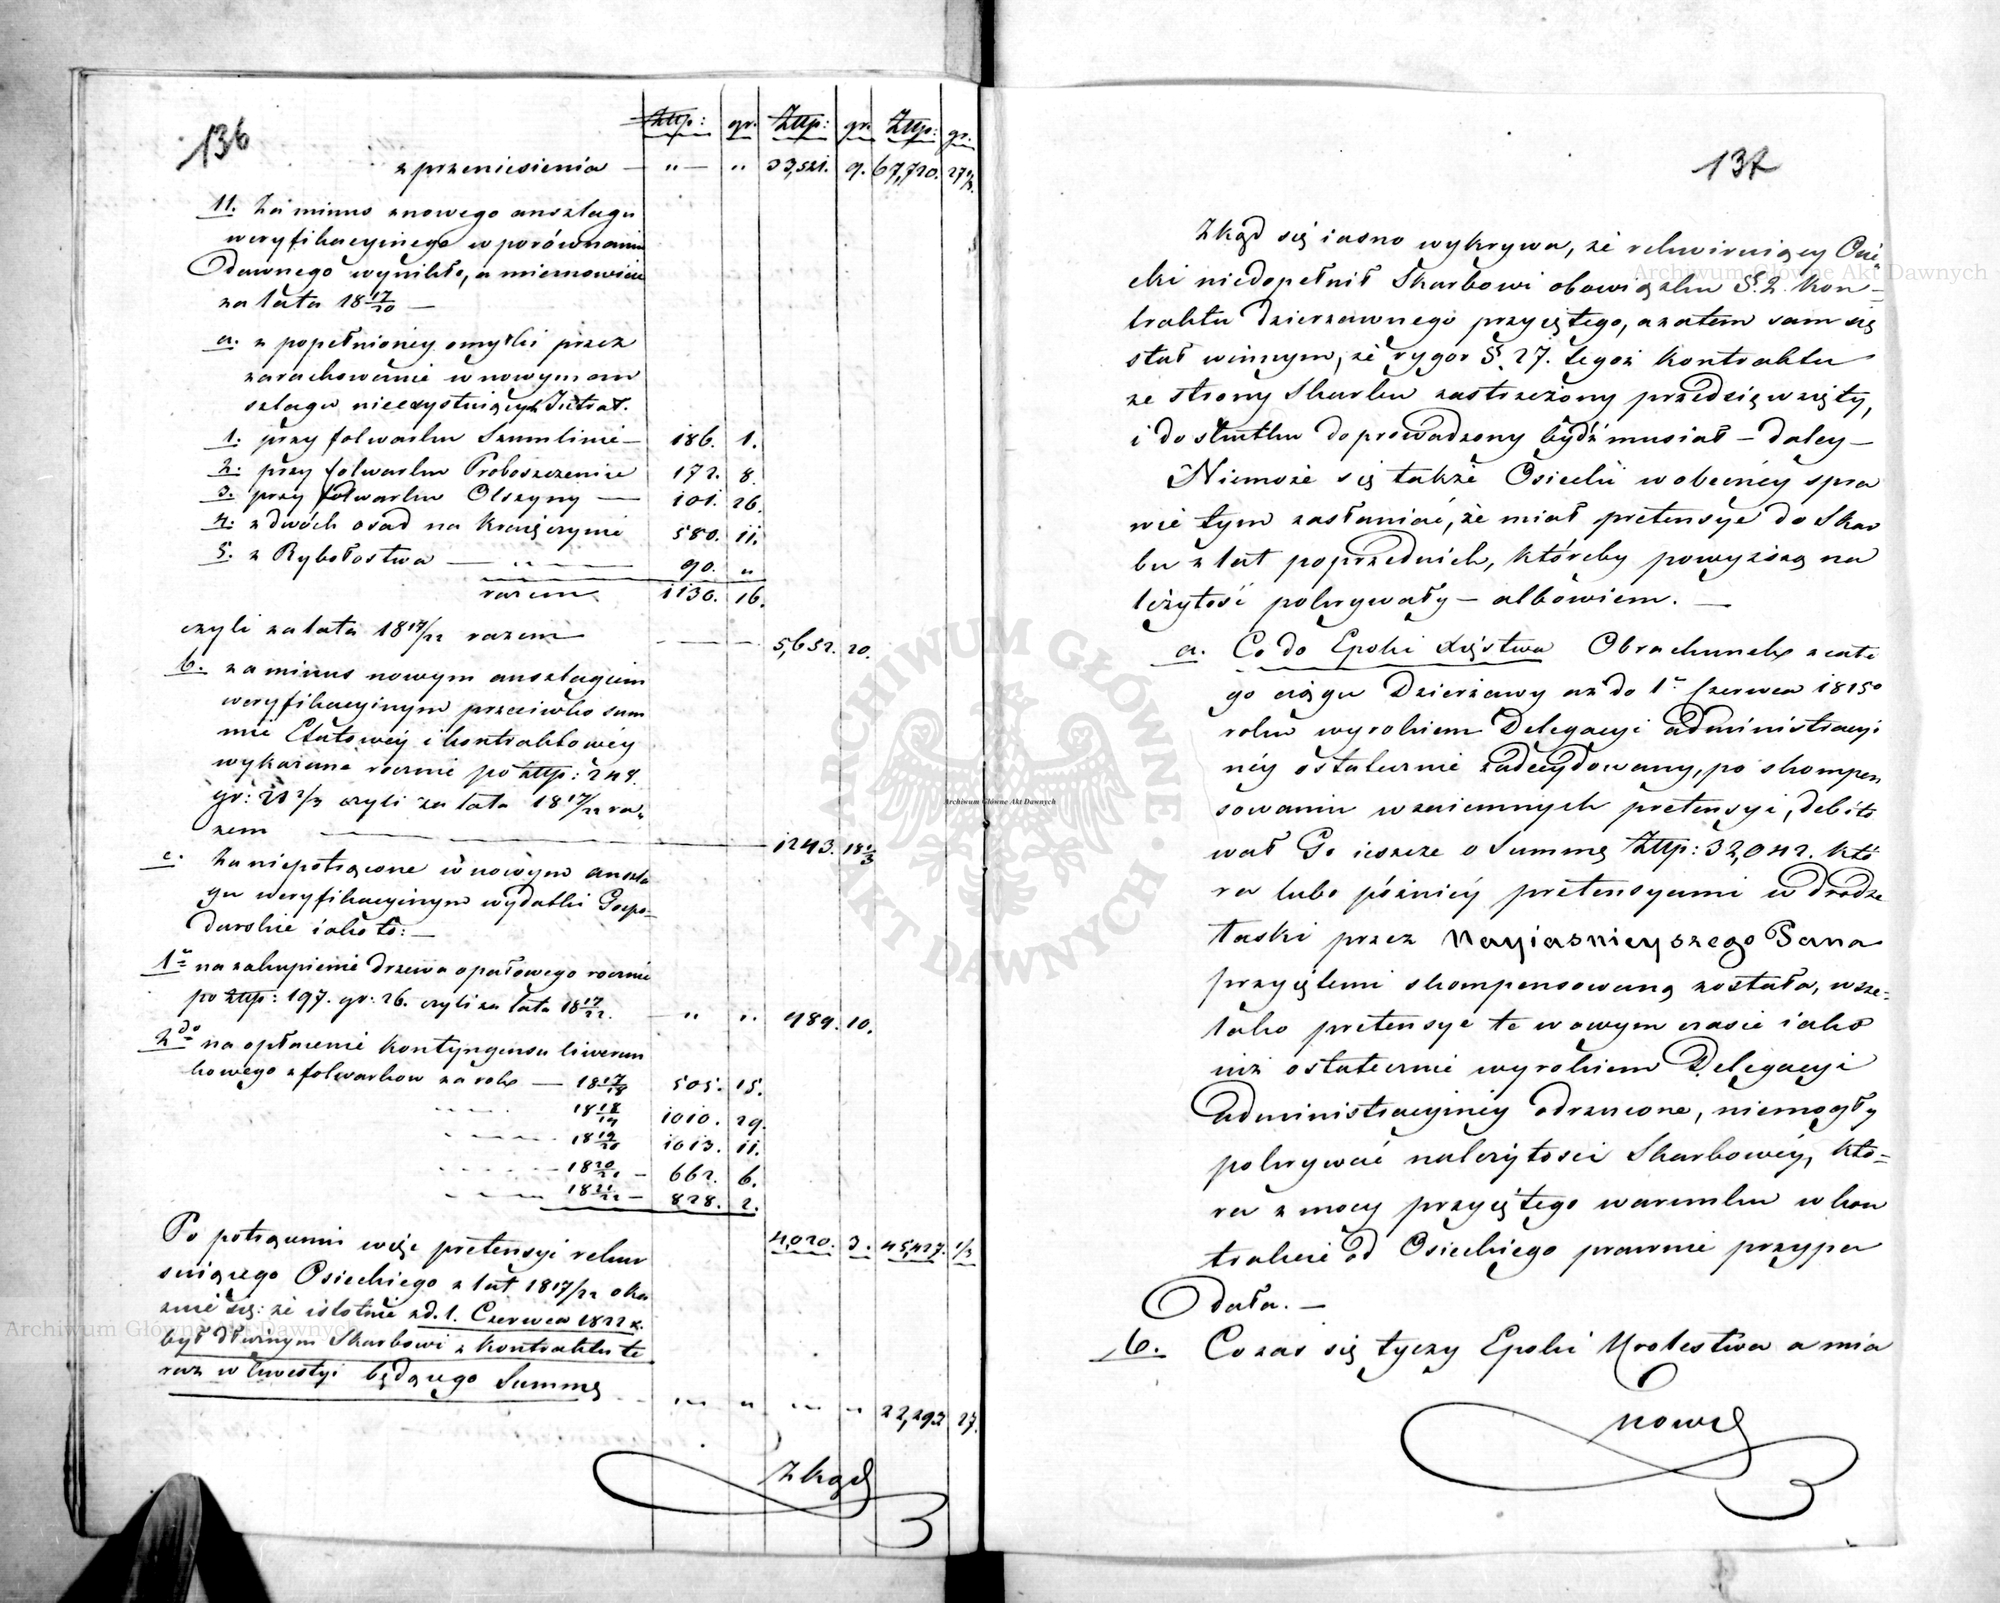 136
Złtp: gr. Złtp: gr. Złtp: gr.
z przeniesienia — " — " 33,521. 9. 67,720. 27 1/3.
11. Za minus z nowego anszlagu
weryfikacyinego w porównaniu
dawnego wynikłe, a mianowicie
za lata 18 17/20 —
a. z popełnioney omyłki przez
zarachowanie w nowym an
szlagu nieexystuiących Intrat.
1. przy folwarku Szumlinie — 186. 1.
2. przy folwarku Proboszczewice 172. 8.
3. przy folwarku Olszyny — 101. 26.
4. z dwóch osad na Krajęczynie 580. 11.
5. z Rybołostwa — " — 90. "
razem 1130. 16.
czyli za lata 18 17/22 razem — — — 5,652. 20.
b. za minus nowym anszlagiem
weryfikacyinym przeciwko sum
mie Etatowéy i kontraktowéy
wykazane rocznie po złtp: 248.
gr: 21 2/3 czyli za lata 18 17/22 ra„
zem — 1243. 18 1/3
c. Za niepotrącone w nowym anszla
gu weryfikacyinym wydatki Gospo-
darskie iako to: —
1° na zakupienie drzewa opałowego rocznie
po złtp: 197. gr: 26. czyli za lata 18 17/22. — " " 989. 10.
2do na opłacenie Kontyngensu liwerun
kowego z folwarkow za rok — 18 17/18 505. 15.
18 18/19 1010. 29.
18 19/20 1013. 11.
18 20/21 — 662. 6.
18 21/22 — 828. 2.
4,020. 3. 45,427. 1/3
Po potrąceniu więc pretensyi rekur
suiącego Osieckiego z lat 18 17/22 oka
zuie się: że istotnie z d. 1. Czerwca 1822 r.
był dłużnym Skarbowi z kontraktu te
raz w kwestyi będącego Summę — "' " "' " 22,293 27.
Zkąd
137
Zkąd się iasno wykrywa, że rekuruiący Osie
cki niedopełnił Skarbowi obowiązku §. 2. Kon=
traktu dzierzawnego przyiętego, a zatem sam się
stał winnym, że rygor §. 27. tegoż Kontraktu
ze strony Skarbu zastrzeżony przedsięwzięty,
i do skutku doprowadzony bydź musiał — daley —
Niemoże się także Osiecki w obecnéy spra
wie tym zasłaniać, że miał pretensye do Skar
bu z lat poprzednich, któreby powyższą na
leżytość pokrywały — albowiem. —
a. Co do Epoki Xięstwa Obrachunek z całe
go ciągu Dzierżawy aż do 1° Czerwca 1815°
roku wyrokiem Delegacyi administracyi
néy ostatecznie zadecydowany, po skompen
sowaniu wzaiemnych pretensyi, debito
wał Go ieszcze o Summę Złtp: 32,042. któ
ra lubo późniéy pretensyami w drodze
łaski przez Nayiaśnieyszego Pana
przyiętemi skompensowaną została, wsze=
lako pretensye te w owym czasie iako
iuż ostatecznie wyrokiem Delegacyi
administracyinéy odrzucone, niemogły
pokrywać należytości Skarbowéy, któ=
ra z mocy przyiętego warunku w kon
trakcie od Osieckiego prawnie przypa
dała. —
b. Co zaś się tyczy Epoki Krolestwa a mia
nowi